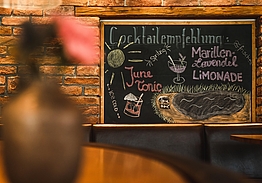 Cocktailempfehlung
June
Tonic
Marillen-
Lavendel
LiMONADE